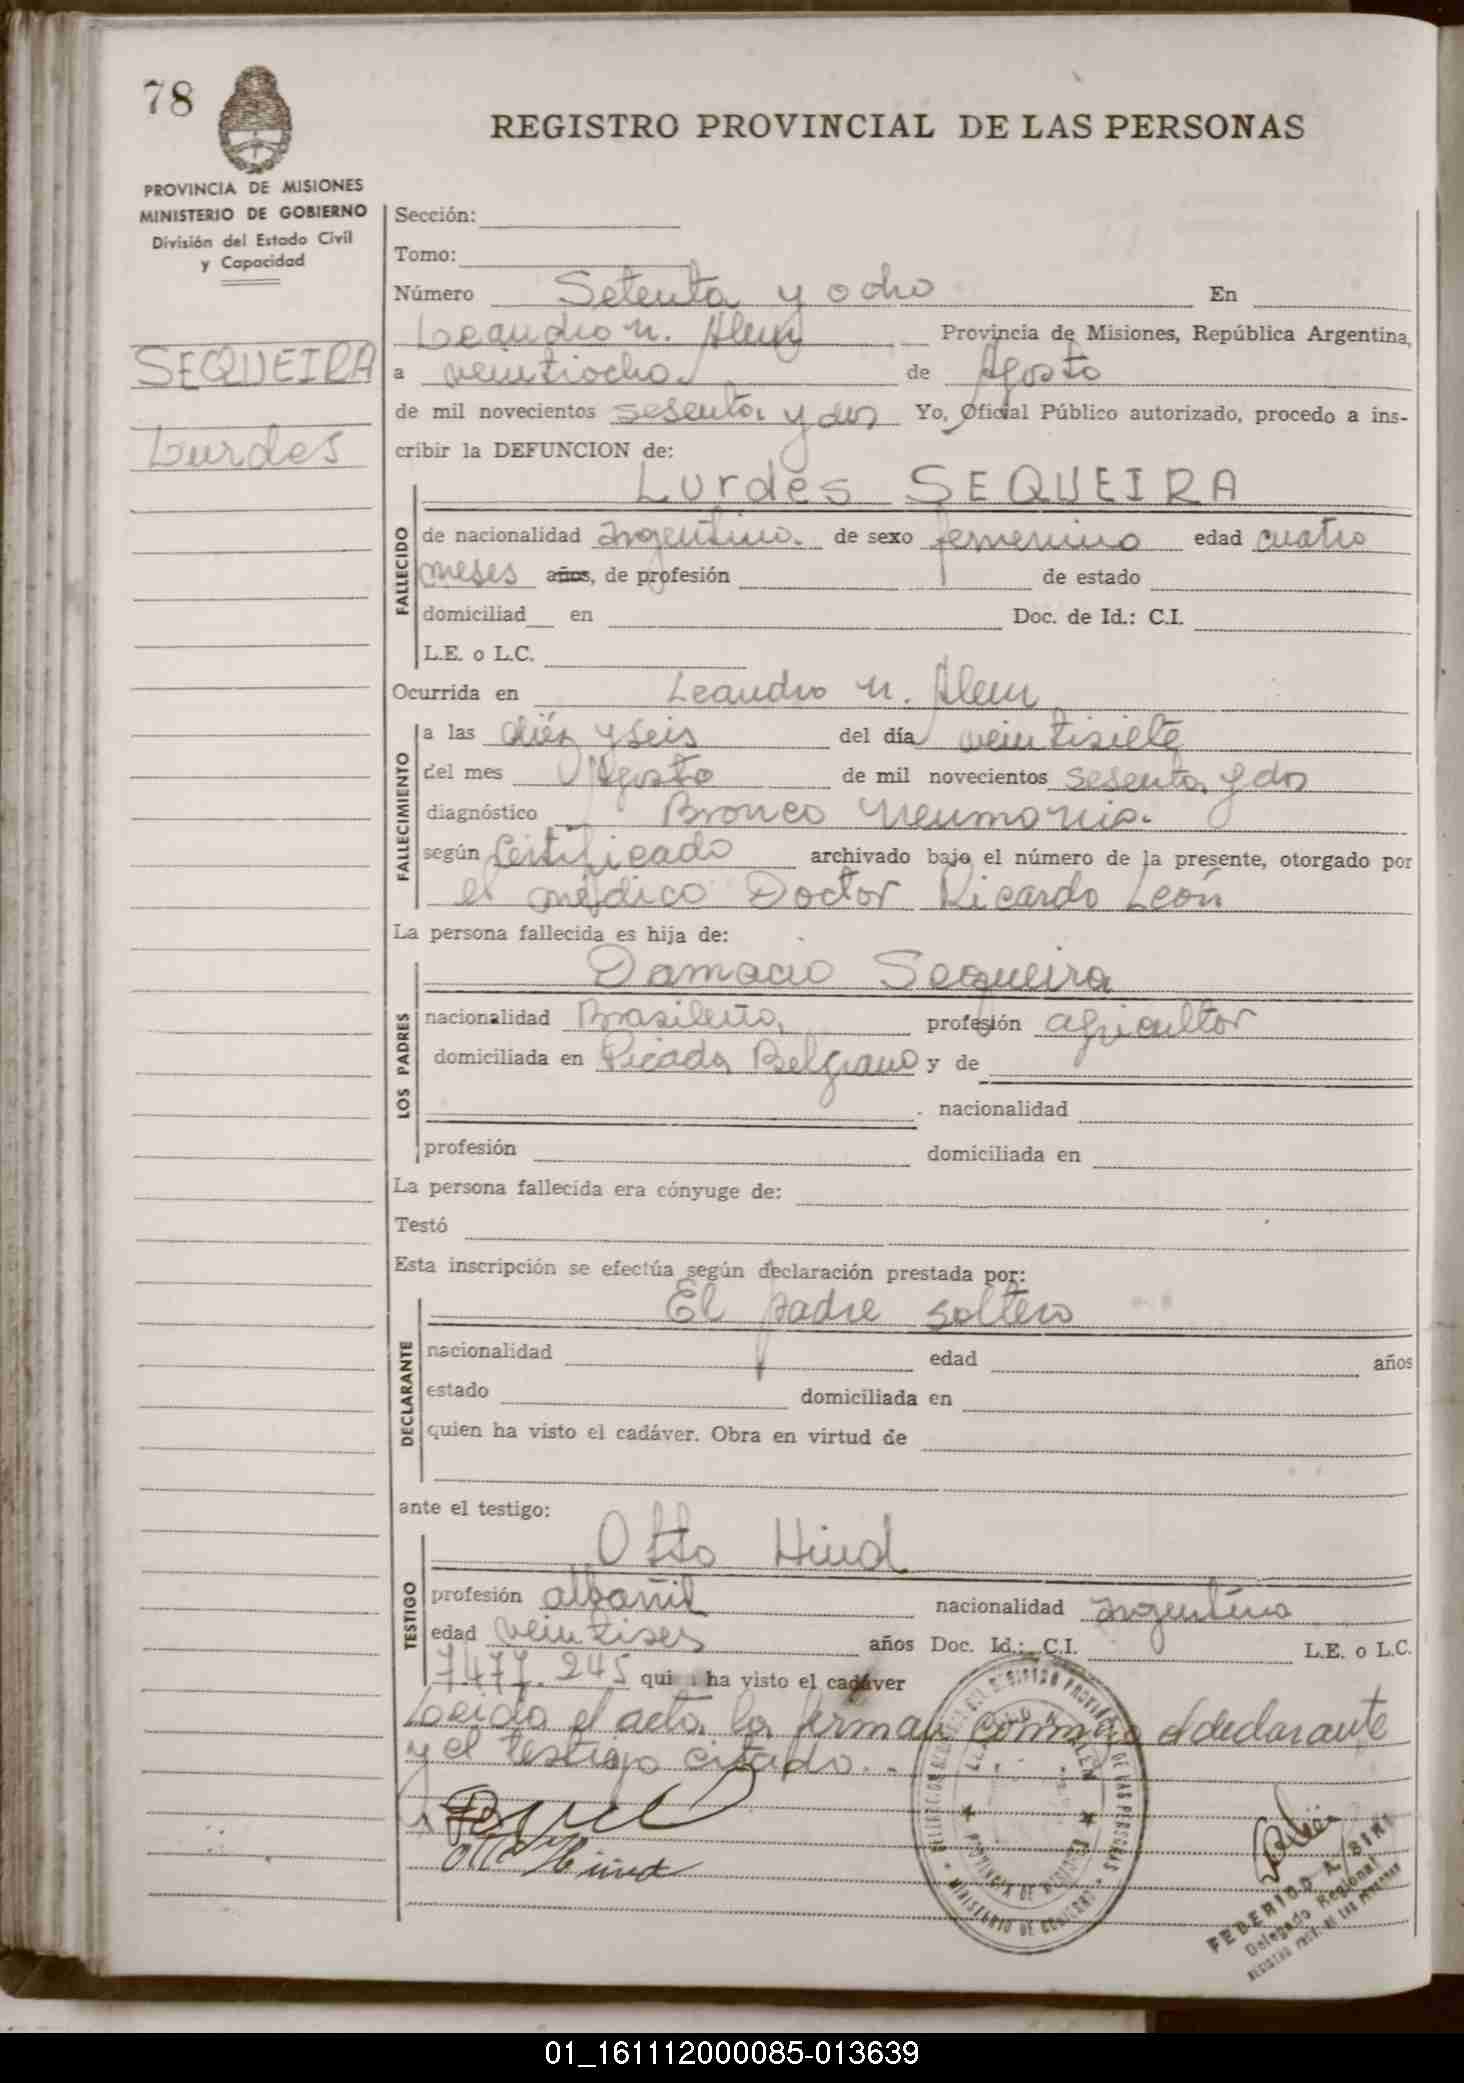 78
REGISTRO PROVINCIAL DE LAS PERSONAS
PROVINCIA DE MISIONES
MINISTERIO DE GOBIERNO
División del Estado Civil
y Capacidad
SEQUEIRA
Lurdes
Sección:
Tomo:
Número Setenta y ocho En
Leandro N. Alem Provincia de Misiones, República Argentina,
a veintiocho de Agosto
de mil novecientos sesenta y dos Yo, Oficial Público autorizado, procedo a ins-
cribir la DEFUNCION de:
Lurdes SEQUEIRA
FALLECIDO
de nacionalidad argentina de sexo femenino edad cuatro
meses años, de profesión de estado
domiciliad en Doc. de Id.: C.I.
L.E. o L.C.
Ocurrida en Leandro N. Alem
FALLECIMIENTO
a las diéz y seis del día veintisiete
del mes Agosto de mil novecientos sesenta y dos
diagnóstico Bronco Neumonia.
según Certificado archivado bajo el número de la presente, otorgado por
el médico Doctor Ricardo León
La persona fallecida es hija de:
LOS PADRES
Damacio Sequeira
nacionalidad Brasileña profesión agricultor
domiciliada en Picada Belgrano y de
nacionalidad
profesión domiciliada en
La persona fallecida era cónyuge de:
Testó
Esta inscripción se efectúa según declaración prestada por:
El padre soltero
DECLARANTE
nacionalidad edad años
estado domiciliada en
quien ha visto el cadáver. Obra en virtud de
ante el testigo:
Otto Hind
TESTIGO
profesión albañil nacionalidad argentina
edad veintises años Doc. Id.: C.I. L.E. o L.C.
7477.245 qui ha visto el cadáver
Leida el acta la firman conmigo el declarante
y el testigo citado..
Otto Hind
LEANDRO N. ALEM
PROVINCIA DE MISIONES
MINISTERIO DE GOBIERNO
FEDERICO A. BIRI
Delegado Regional
REGISTRO PROV. DE LAS PERSONAS
01_161112000085-013639